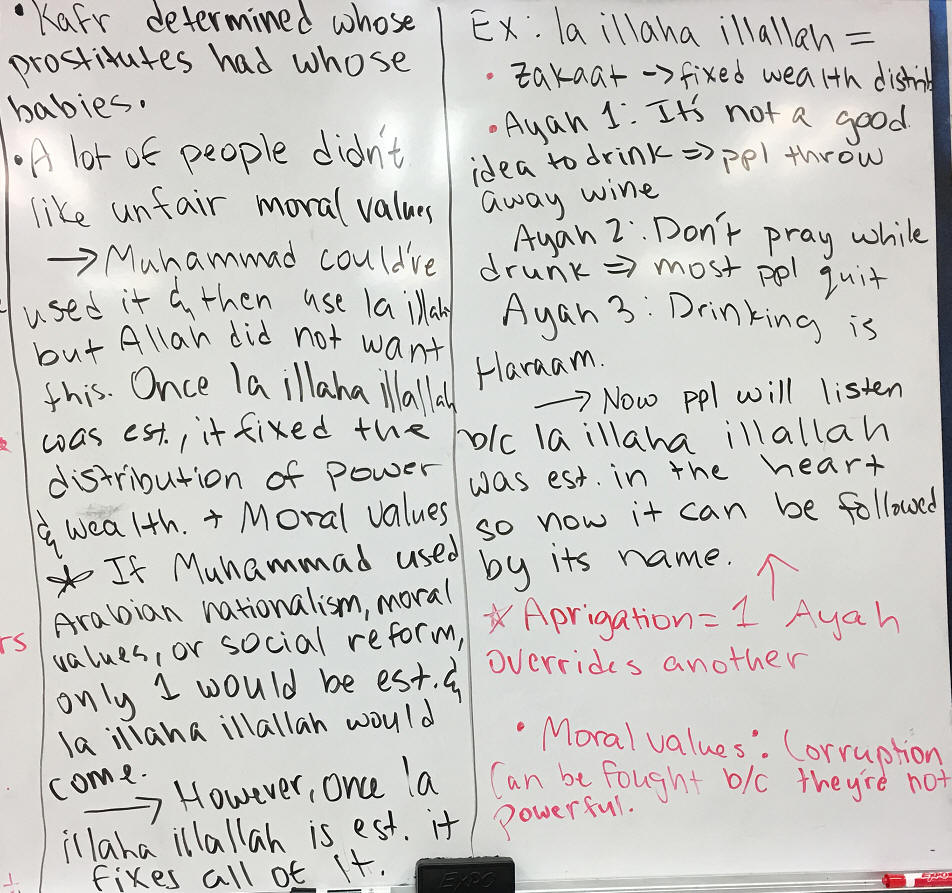 • Kafr determined whose
prostitutes had whose
babies.
• A lot of people didn't
like unfair moral values
→ Muhammad could've
used it & then use la illah
but Allah did not want
this. Once la illaha illallah
was est., it fixed the
distribution of power
& wealth. + Moral values
* If Muhammad used
Arabian nationalism, moral
values, or social reform,
only 1 would be est. &
la illaha illallah would
come.
→ However, once la
illaha illallah is est. it
fixes all of it.
rs
Ex: la illaha illallah =
• Zakaat → fixed wealth distrib
• Ayah 1: It's not a good
idea to drink ⇒ ppl throw
away wine
Ayah 2: Don't pray while
drunk ⇒ most ppl quit
Ayah 3: Drinking is
Haraam.
→ Now ppl will listen
b/c la illaha illallah
was est. in the heart
so now it can be followed
by its name. ↑
* Aprigation = 1 Ayah
overrides another
• Moral values: Corruption
can be fought b/c they're not
powerful.
EXPO
EXPO